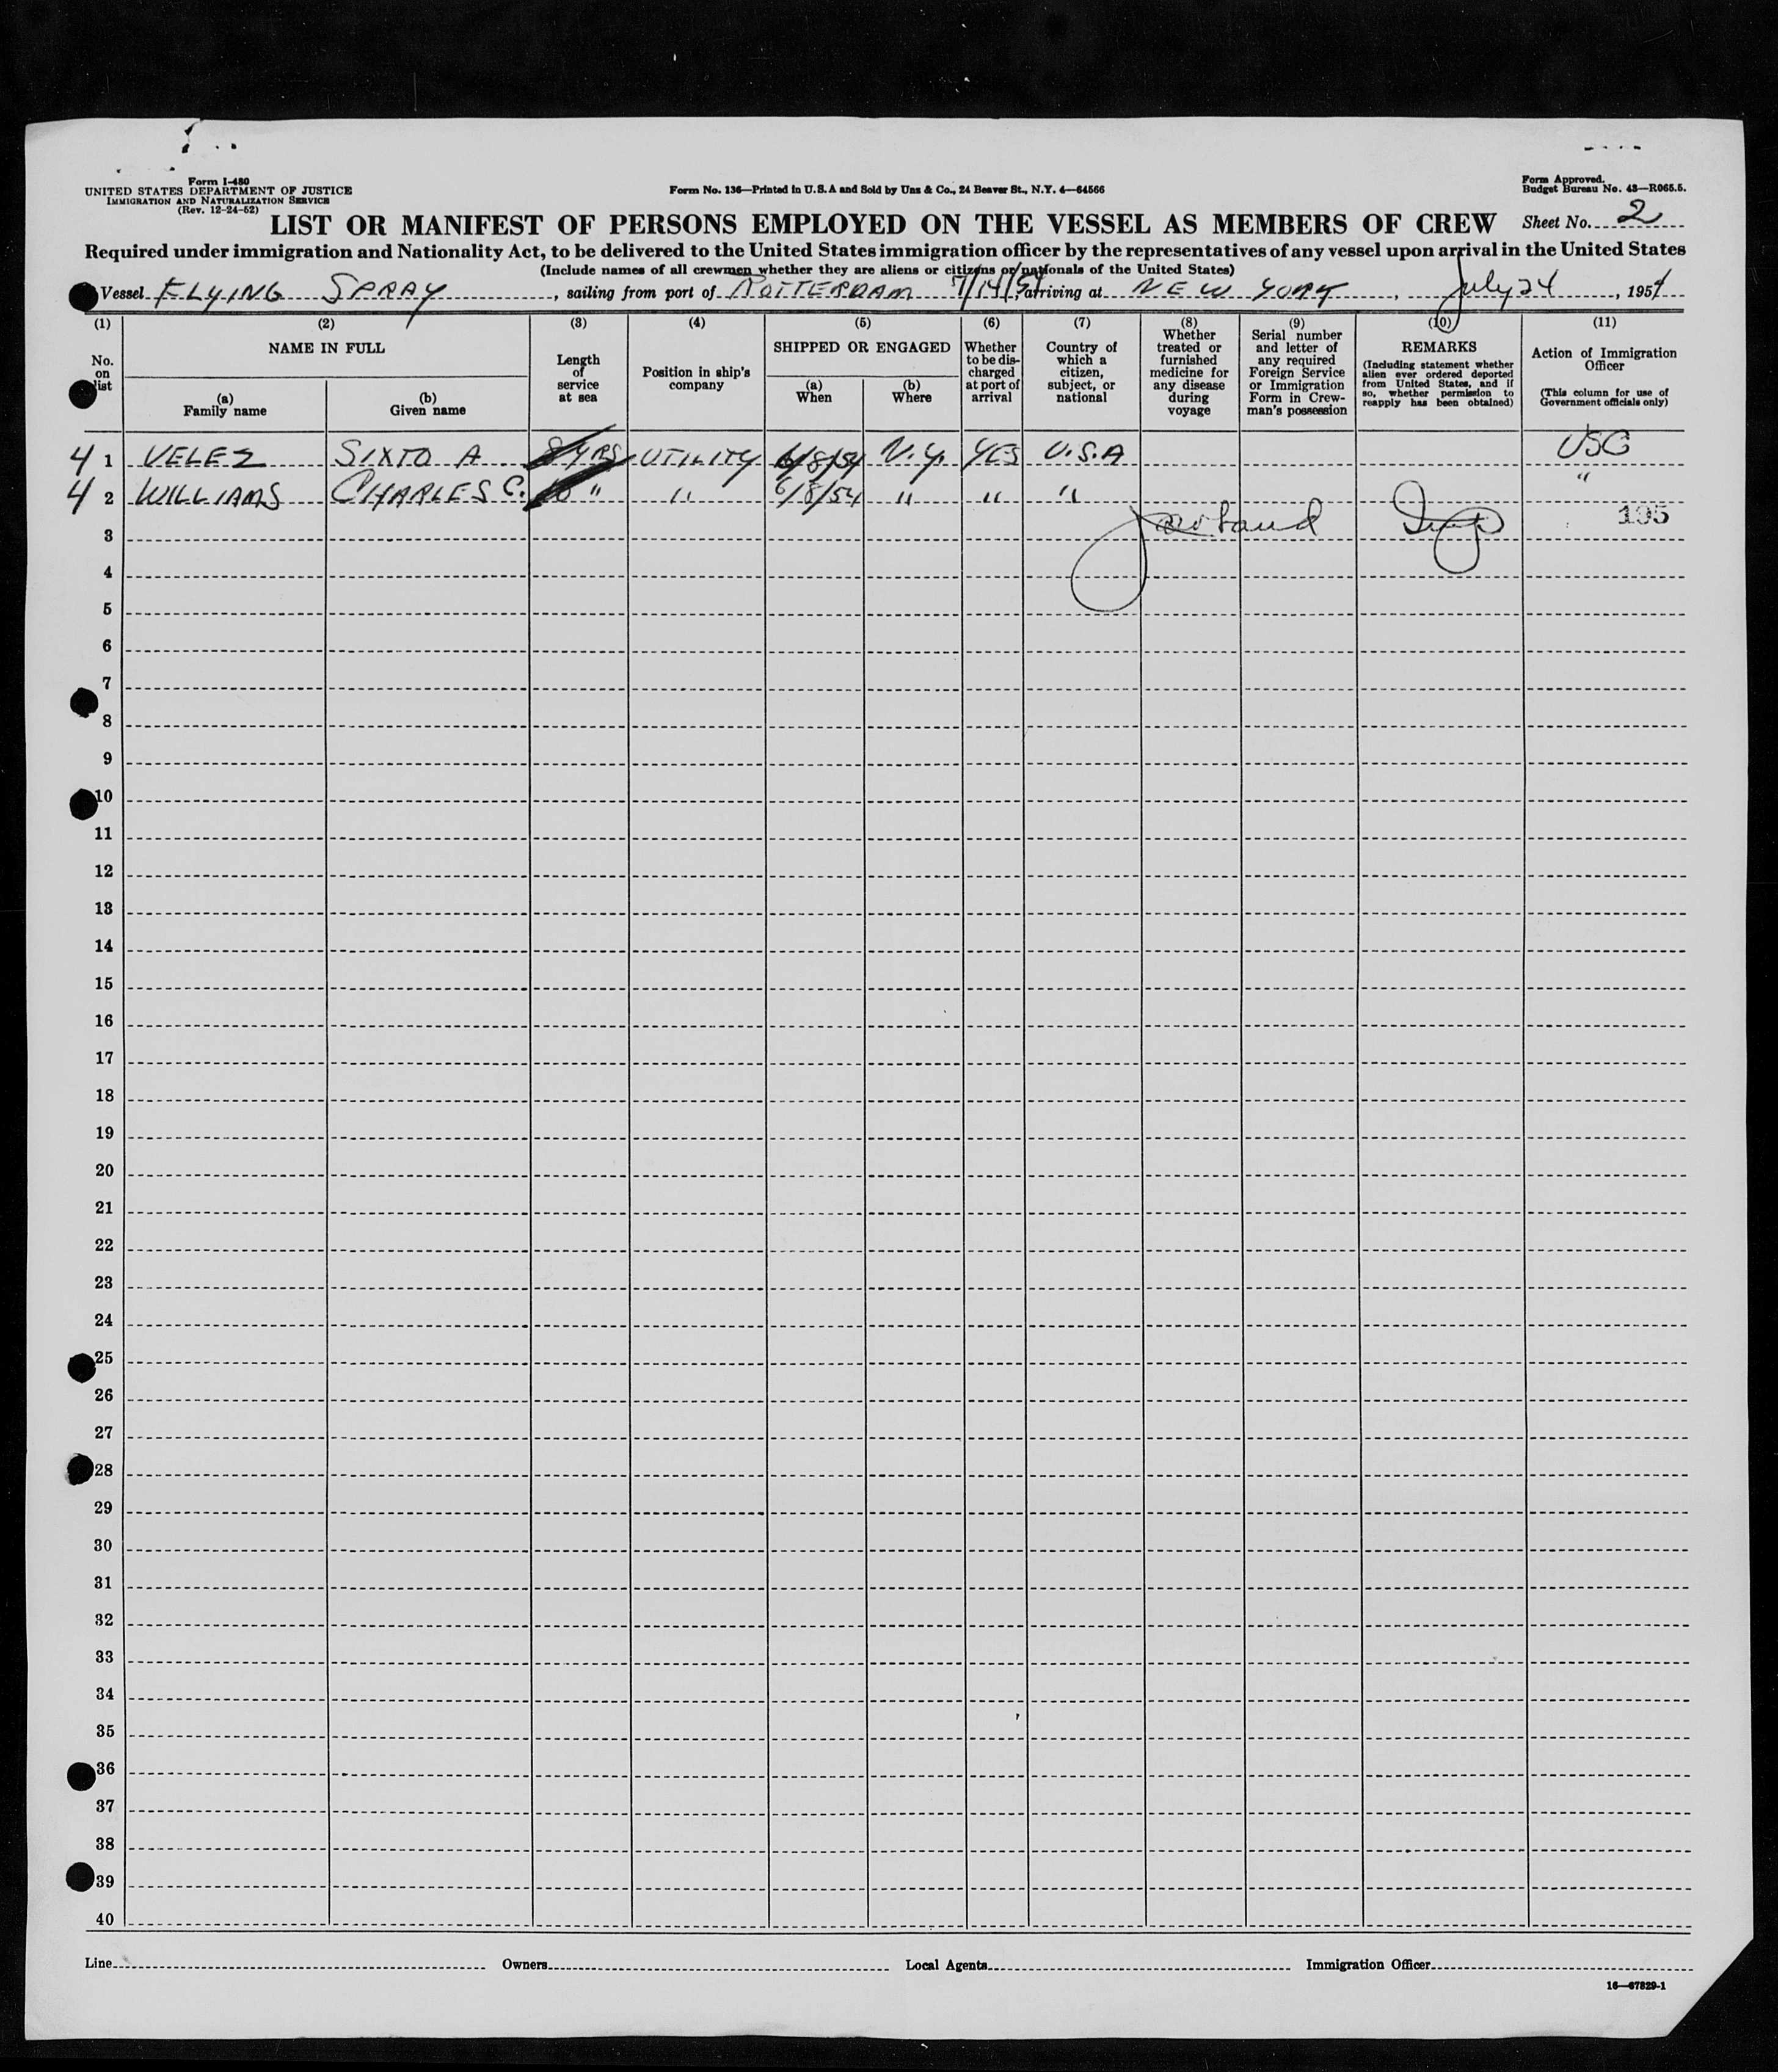 Form I-480
UNITED STATES DEPARTMENT OF JUSTICE
IMMIGRATION AND NATURALIZATION SERVICE
(Rev. 12-24-52)
Form No. 136—Printed in U.S.A and Sold by Unz & Co., 24 Beaver St., N.Y. 4—64566
Form Approved.
Budget Bureau No. 43—R065.5.
LIST OR MANIFEST OF PERSONS EMPLOYED ON THE VESSEL AS MEMBERS OF CREW
Sheet No. 2
Required under immigration and Nationality Act, to be delivered to the United States immigration officer by the representatives of any vessel upon arrival in the United States
(Include names of all crewmen whether they are aliens or citizens or nationals of the United States)
Vessel FLYING SPRAY, sailing from port of ROTTERDAM 7/14/54, arriving at NEW YORK, July 24, 1954
(1) (2) (3) (4) (5) (6) (7) (8) (9) (10) (11)
No. on list
NAME IN FULL
(a) Family name
(b) Given name
Length of service at sea
Position in ship's company
SHIPPED OR ENGAGED
(a) When
(b) Where
Whether to be discharged at port of arrival
Country of which a citizen, subject, or national
Whether treated or furnished medicine for any disease during voyage
Serial number and letter of any required Foreign Service or Immigration Form in Crewman's possession
REMARKS
(Including statement whether alien ever ordered deported from United States, and if so, whether permission to reapply has been obtained)
Action of Immigration Officer
(This column for use of Government officials only)
4 1 VELEZ SIXTO A 8 YRS UTILITY 6/8/54 N.Y. YES U.S.A USC
4 2 WILLIAMS CHARLES C. 10 " " 6/8/54 " " " "
3 195
4
5
6
7
8
9
10
11
12
13
14
15
16
17
18
19
20
21
22
23
24
25
26
27
28
29
30
31
32
33
34
35
36
37
38
39
40
Line Owners Local Agents Immigration Officer
16—67829-1